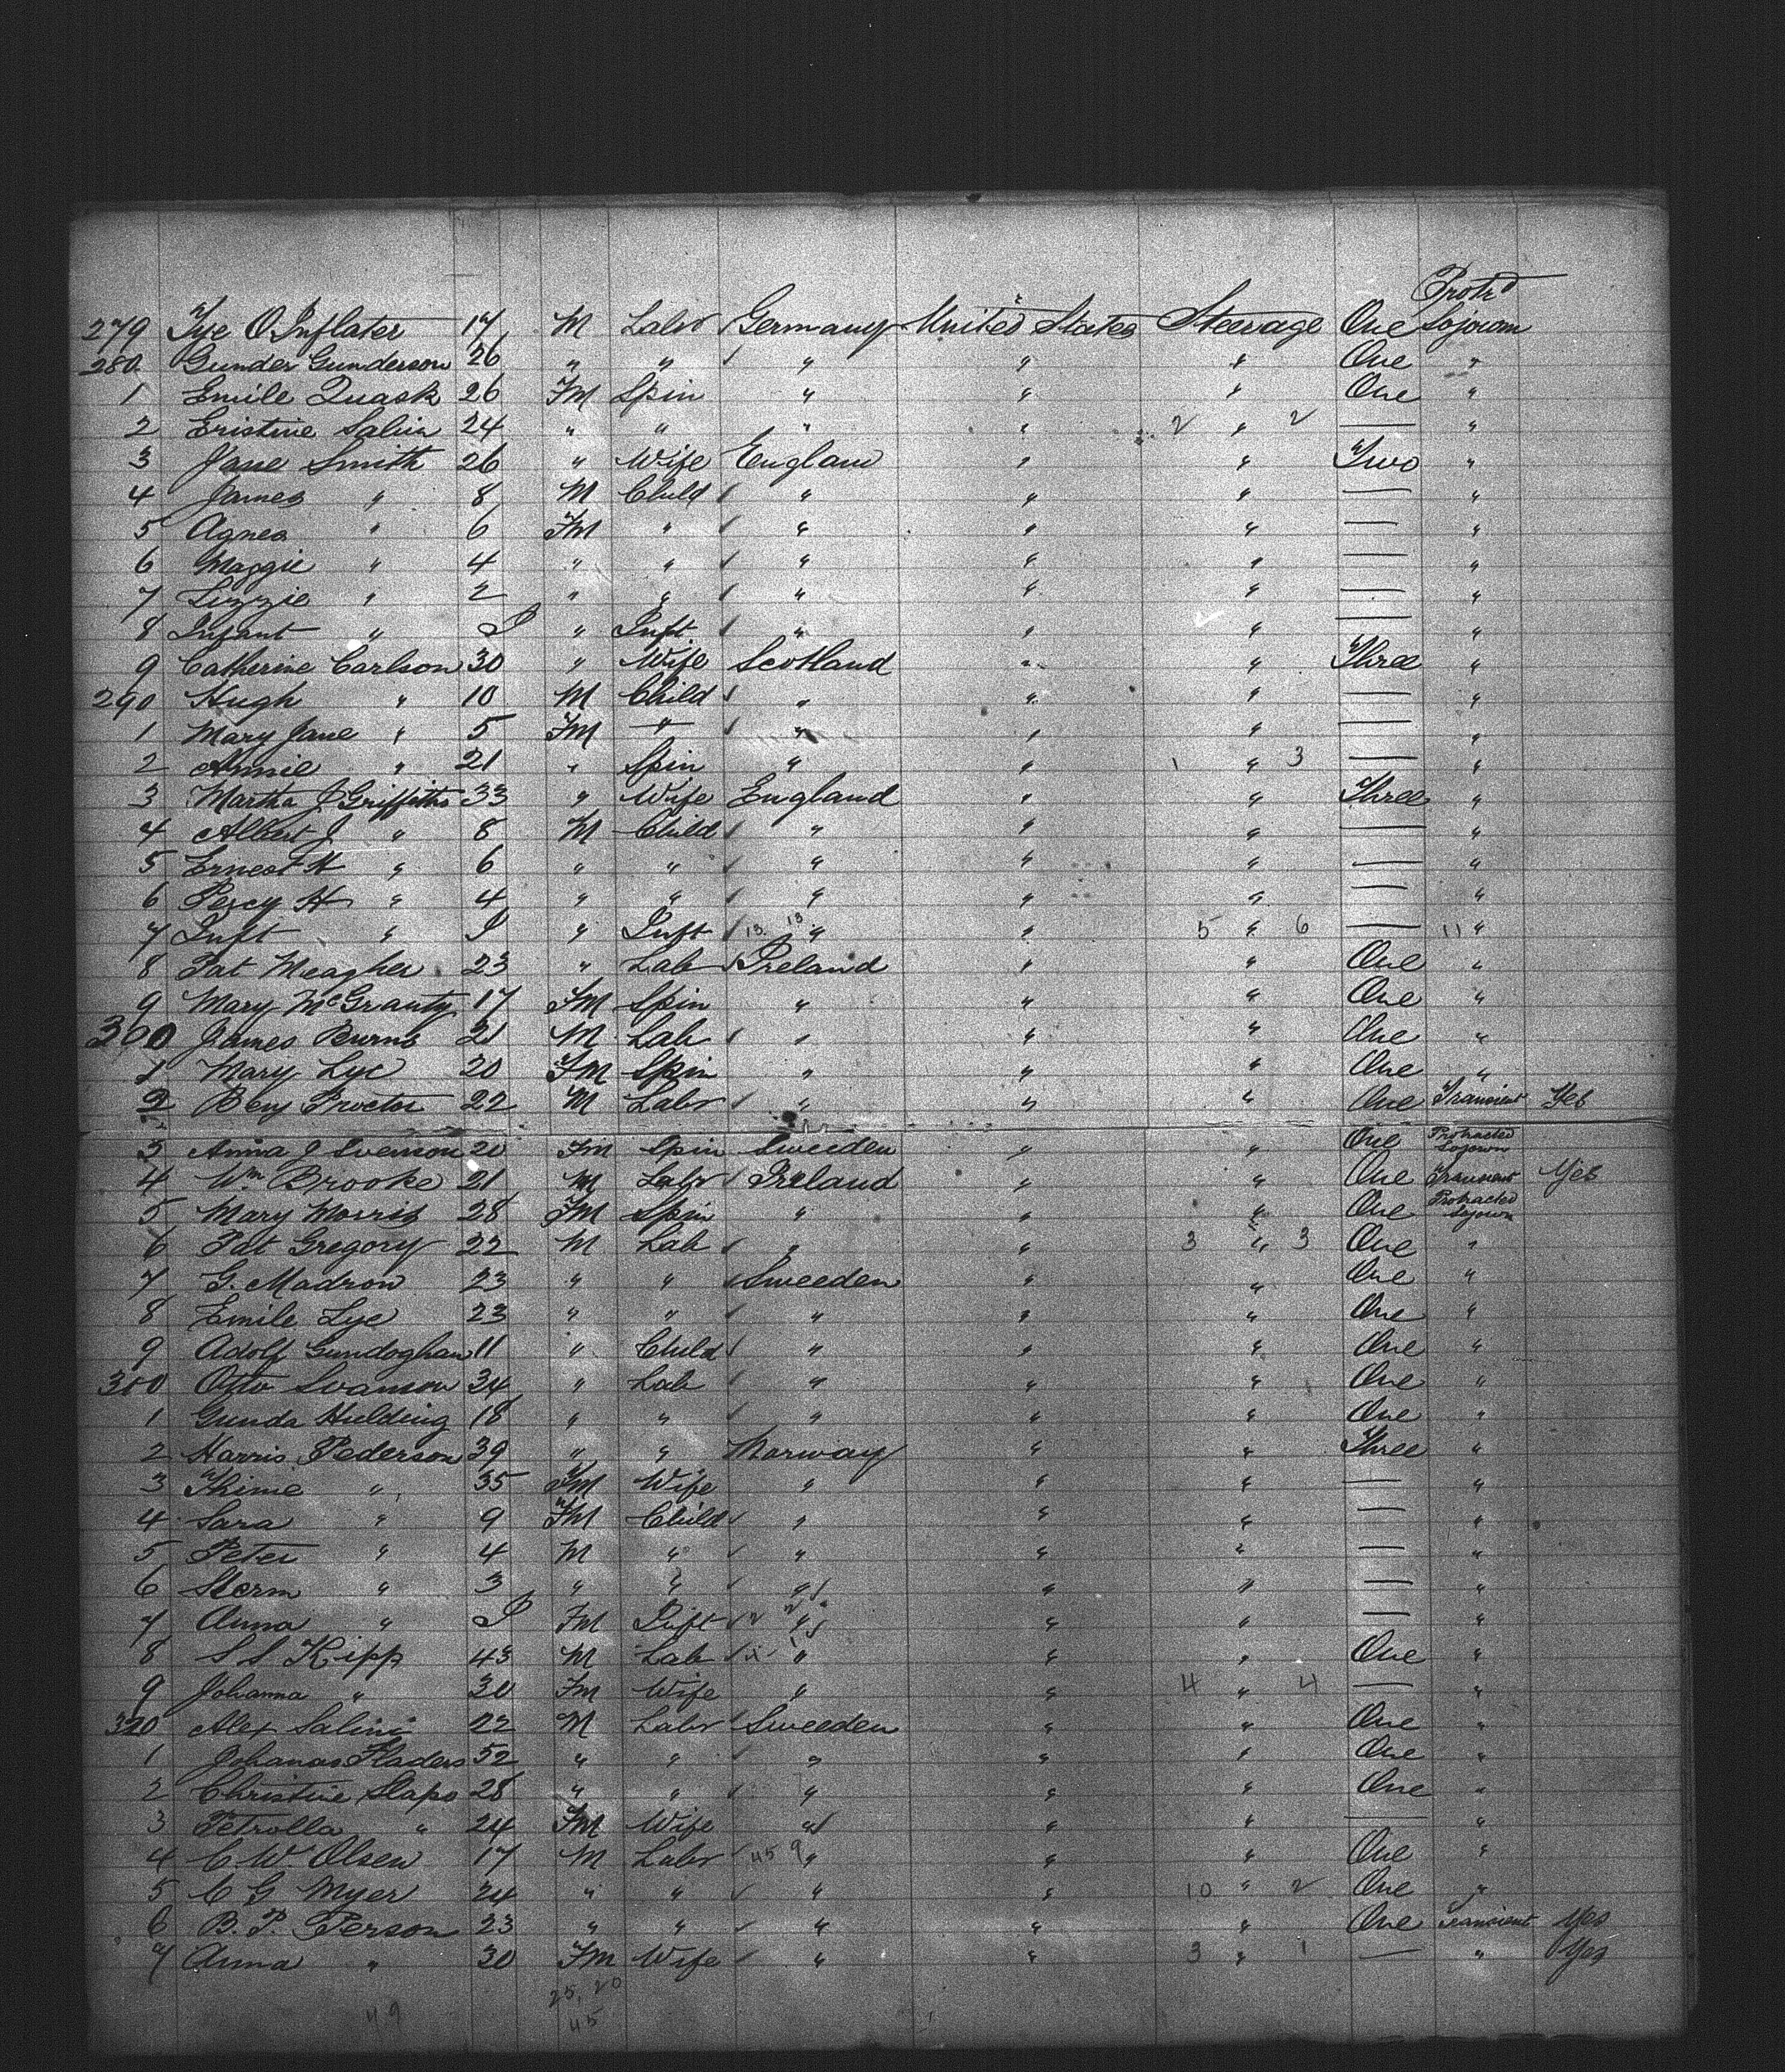 Prot'd
279 Tye O Inflater 17 M Labr Germany United States Steerage One Sojourn
280. Gunder Gunderson 26 " " " " " One "
1 Emile Quask 26 FM Spin " " " One "
2 Eristine Salin 24 " " " " 2 " 2 — "
3 Jane Smith 26 " Wife England " " Two "
4 James " 8 M Child " " " — "
5 Agnes " 6 FM " " " " — "
6 Maggie " 4 " " " " " — "
7 Lizzie " 2 " " " " " — "
8 Infant " I " Inft " " " — "
9 Catherine Carlson 30 " Wife Scotland " " Three "
290 Hugh " 10 M Child " " " — "
1 Mary Jane " 5 FM " " " " — "
2 Annie " 21 " Spin " " 1 " 3 — "
3 Martha J Griffiths 33 " Wife England " " Three "
4 Albert J " 8 M Child " " " — "
5 Ernest H " 6 " " " " " — "
6 Percy H " 4 " " " " " — "
7 Inft " I " Inft 13 13 " " 5 " 6 — 11 "
8 Pat Meagher 23 " Lab Ireland " " One "
9 Mary McGrauty 17 FM Spin " " " One "
300 James Burns 21 M Lab " " " One "
1 Mary Lye 20 FM Spin " " " One "
2 Benj Proctor 22 M Labr " " " One Transient Yes
3 Anna J Svenson 20 FM Spin Sweeden " " One Protracted Sojourn
4 Wm Brooke 21 M Labr Ireland " " One Transient Yes
5 Mary Morris 28 FM Spin " " " One Protracted Sojourn
6 Pat Gregory 22 M Lab " " 3 " 3 One "
7 G. Madron 23 " " Sweeden " " One "
8 Emile Lye 23 " " " " " One "
9 Adolf Gundoghan 11 " Child " " " One "
310 Otto Svanson 34 " Lab " " " One "
1 Gunda Hulding 18 " " " " " One "
2 Harris Pederson 39 " " Norway " " Three "
3 Thime " 35 FM Wife " " " — "
4 Sara " 9 FM Child " " " — "
5 Peter " 4 M " " " " — "
6 Sterm " 3 " " " " " — "
7 Anna " I FM Inft 2 2 " " " — "
8 S S Kipp 43 M Lab " " " One "
9 Johanna " 30 FM Wife " " 4 " 4 — "
320 Alex Salini 22 M Labr Sweeden " " One "
1 Johanas Fladers 52 " " " " " One "
2 Christine Slapo 28 " " " " " One "
3 Petrolla " 24 FM Wife " " " — "
4 C. W. Olsen 17 M Labr 45 9 " " " One "
5 C G Myer 24 " " " " 10 " 2 One "
6 B. P. Person 23 " " " " " One Transient Yes
7 Anna " 30 FM Wife " " 3 " 1 — " Yes
25, 20
49 45